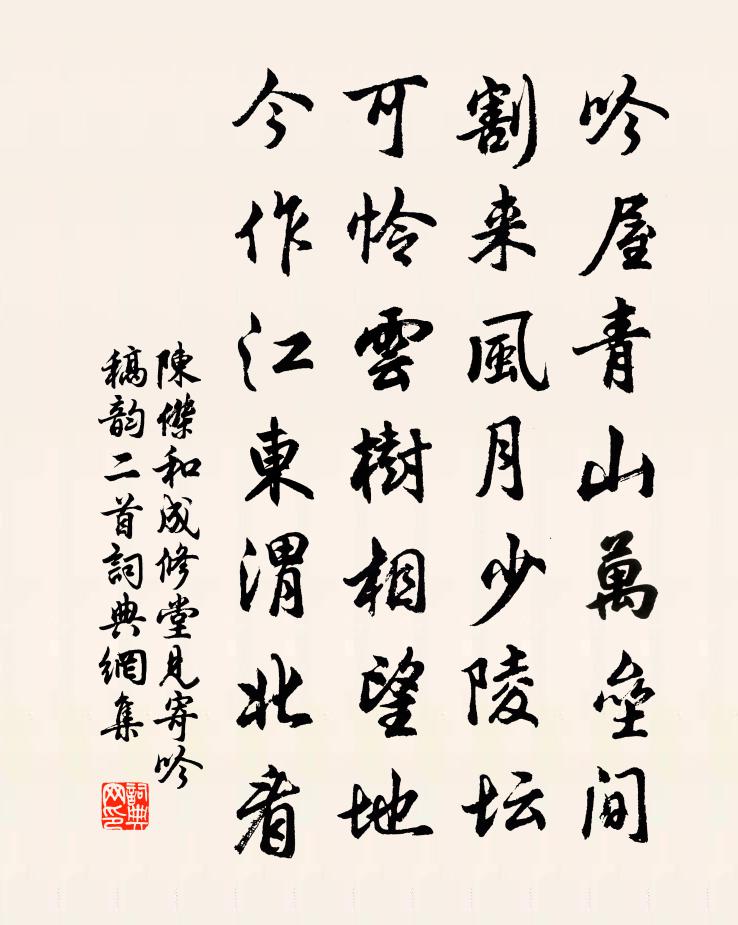 吟屋青山萬壘間
割来風月少陵坛
可怜雲樹相望地
今作江東渭北看
陳傑和成修堂見寄吟
稿韵二首詞典網集
詞典
网印